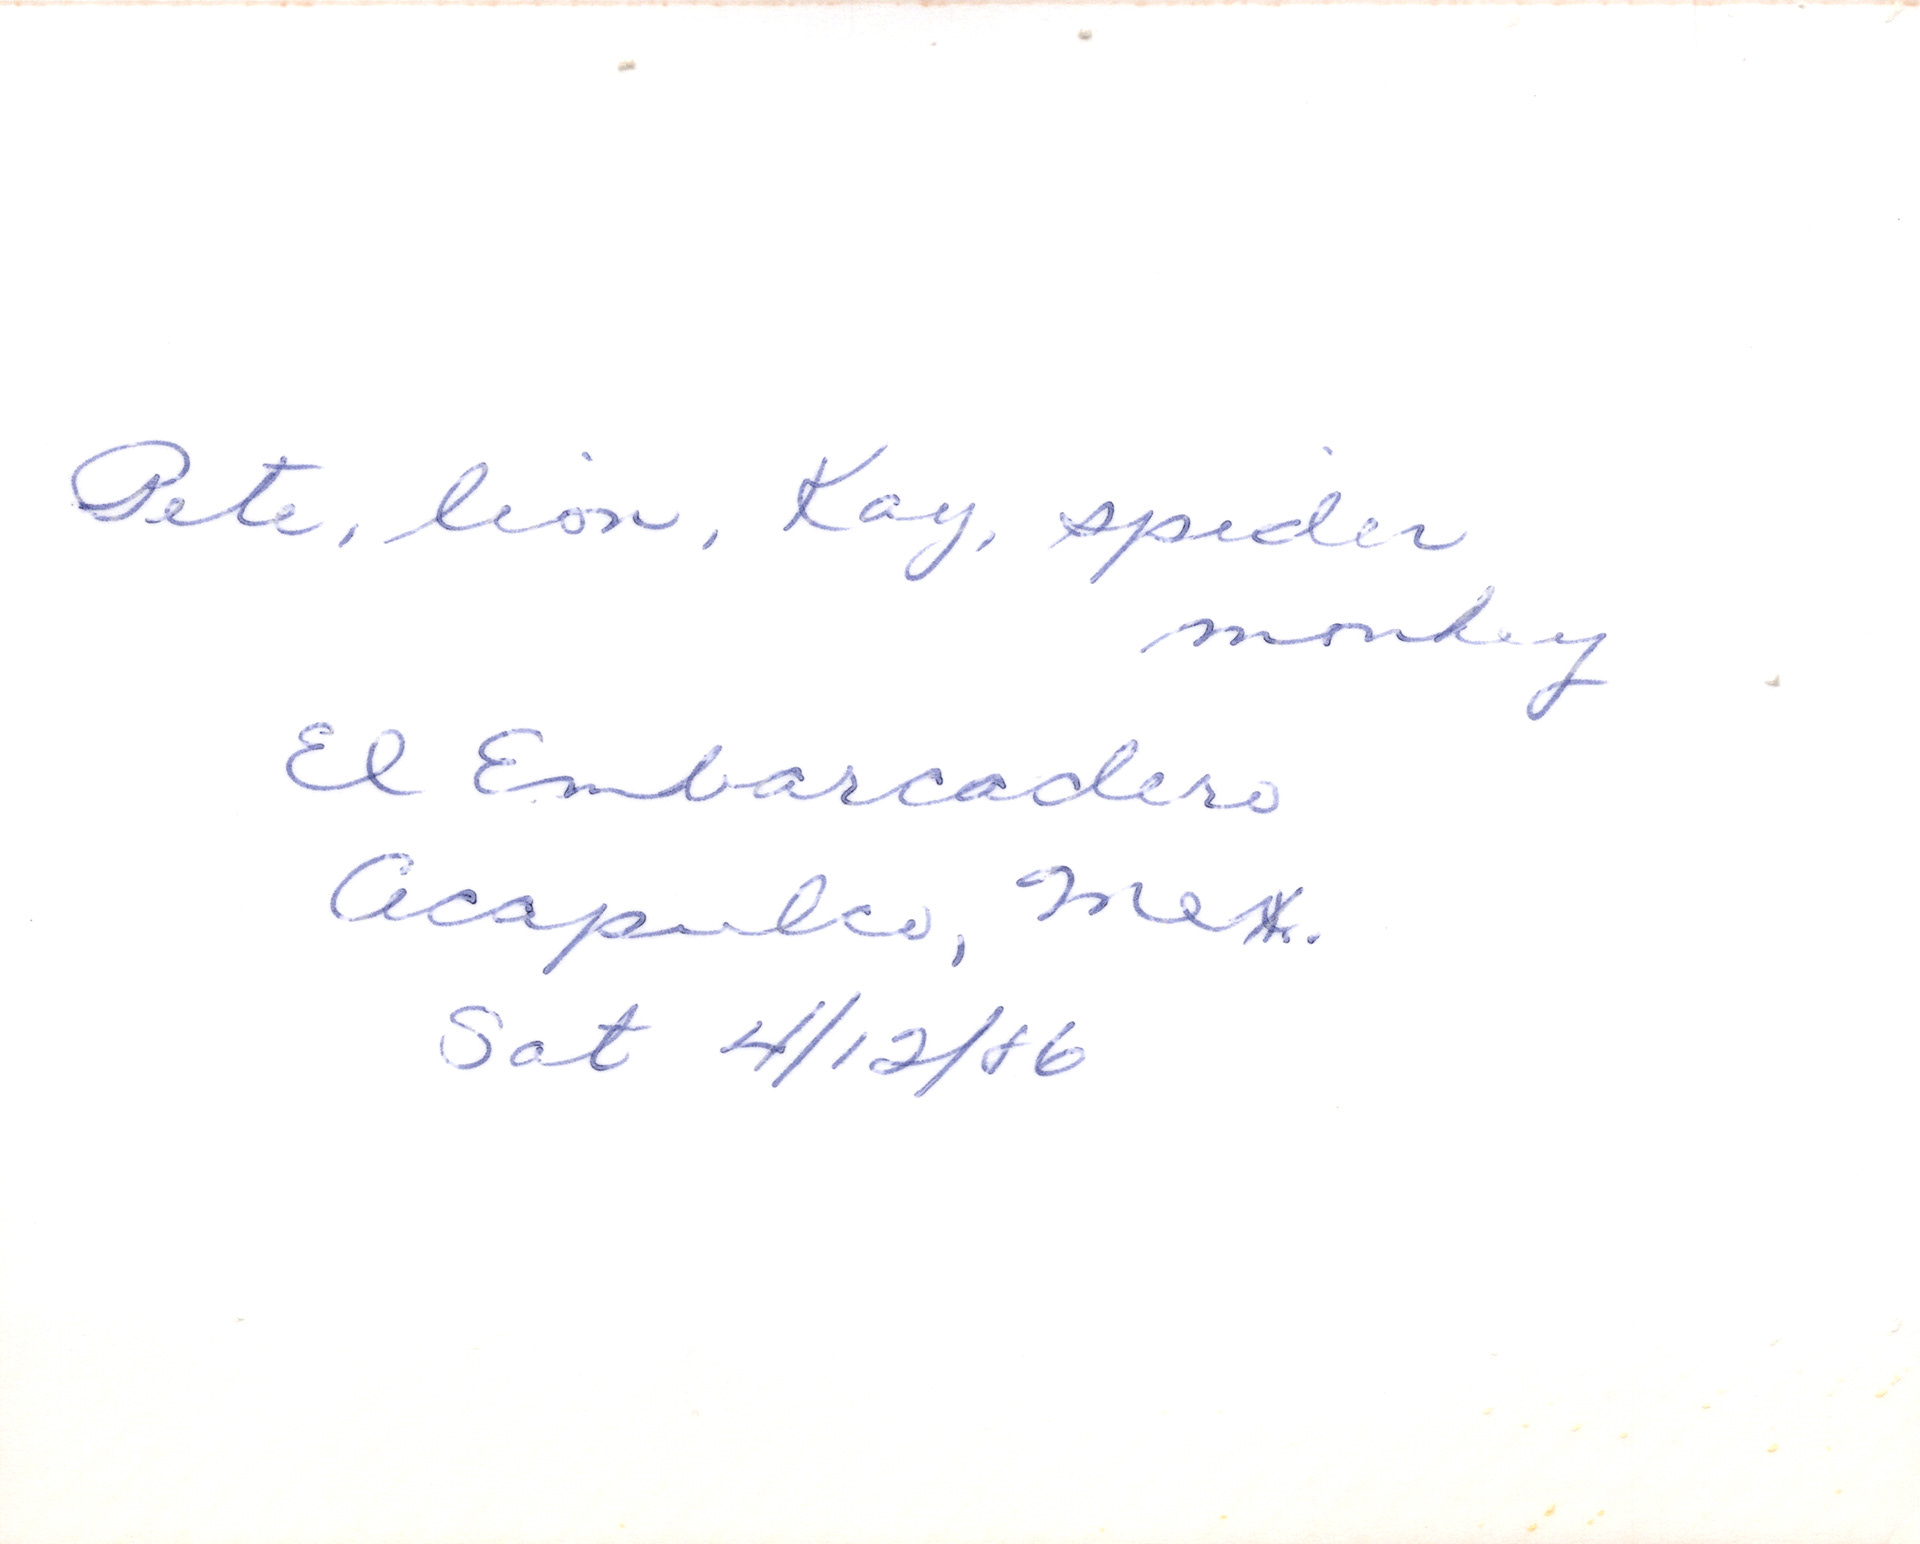 Pete, lion, Kay, spider
monkey
El Embarcadero
Acapulco, Mex.
Sat 4/12/86